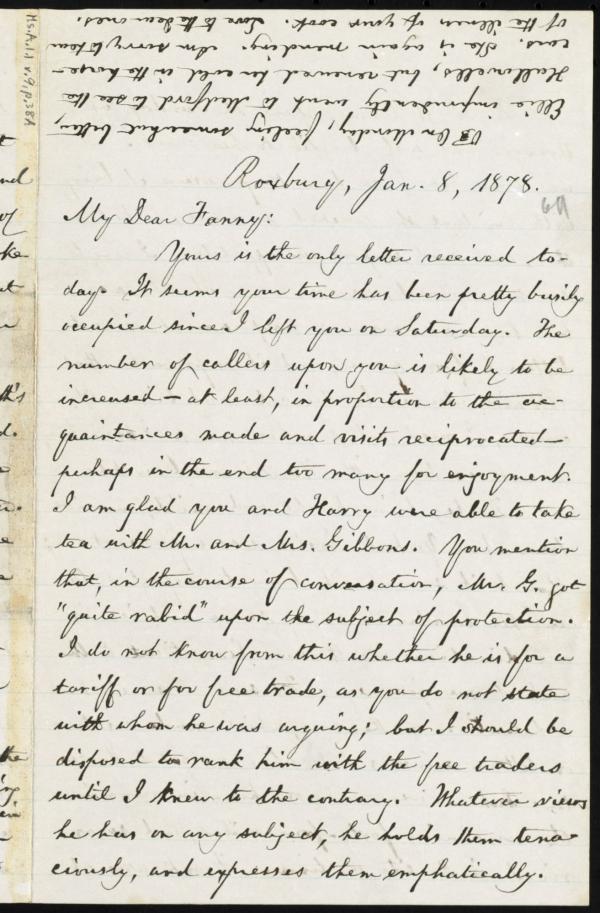 On Monday, feeling somewhat better,
Ellie imprudently went to Medford to see the
Hallowells, but renewed her cold in the horse-
cars. She is again mending. Am sorry to hear
of the illness of your cook. Love to the dear ones.
Ms.A.1.1 v.9, p.38A
Roxbury, Jan. 8, 1878.
69
My Dear Fanny:
Yours is the only letter received to-
day. It seems your time has been pretty busily
occupied since I left you on Saturday. The
number of callers upon you is likely to be
increased — at least, in proportion to the ac-
quaintances made and visits reciprocated —
perhaps in the end too many for enjoyment.
I am glad you and Harry were able to take
tea with Mr. and Mrs. Gibbons. You mention
that, in the course of conversation, Mr. G. got
"quite rabid" upon the subject of protection.
I do not know from this whether he is for a
tariff or for free trade, as you do not state
with whom he was arguing; but I should be
disposed to rank him with the free traders
until I knew to the contrary. Whatever views
he has on any subject, he holds them tena-
ciously, and expresses them emphatically.